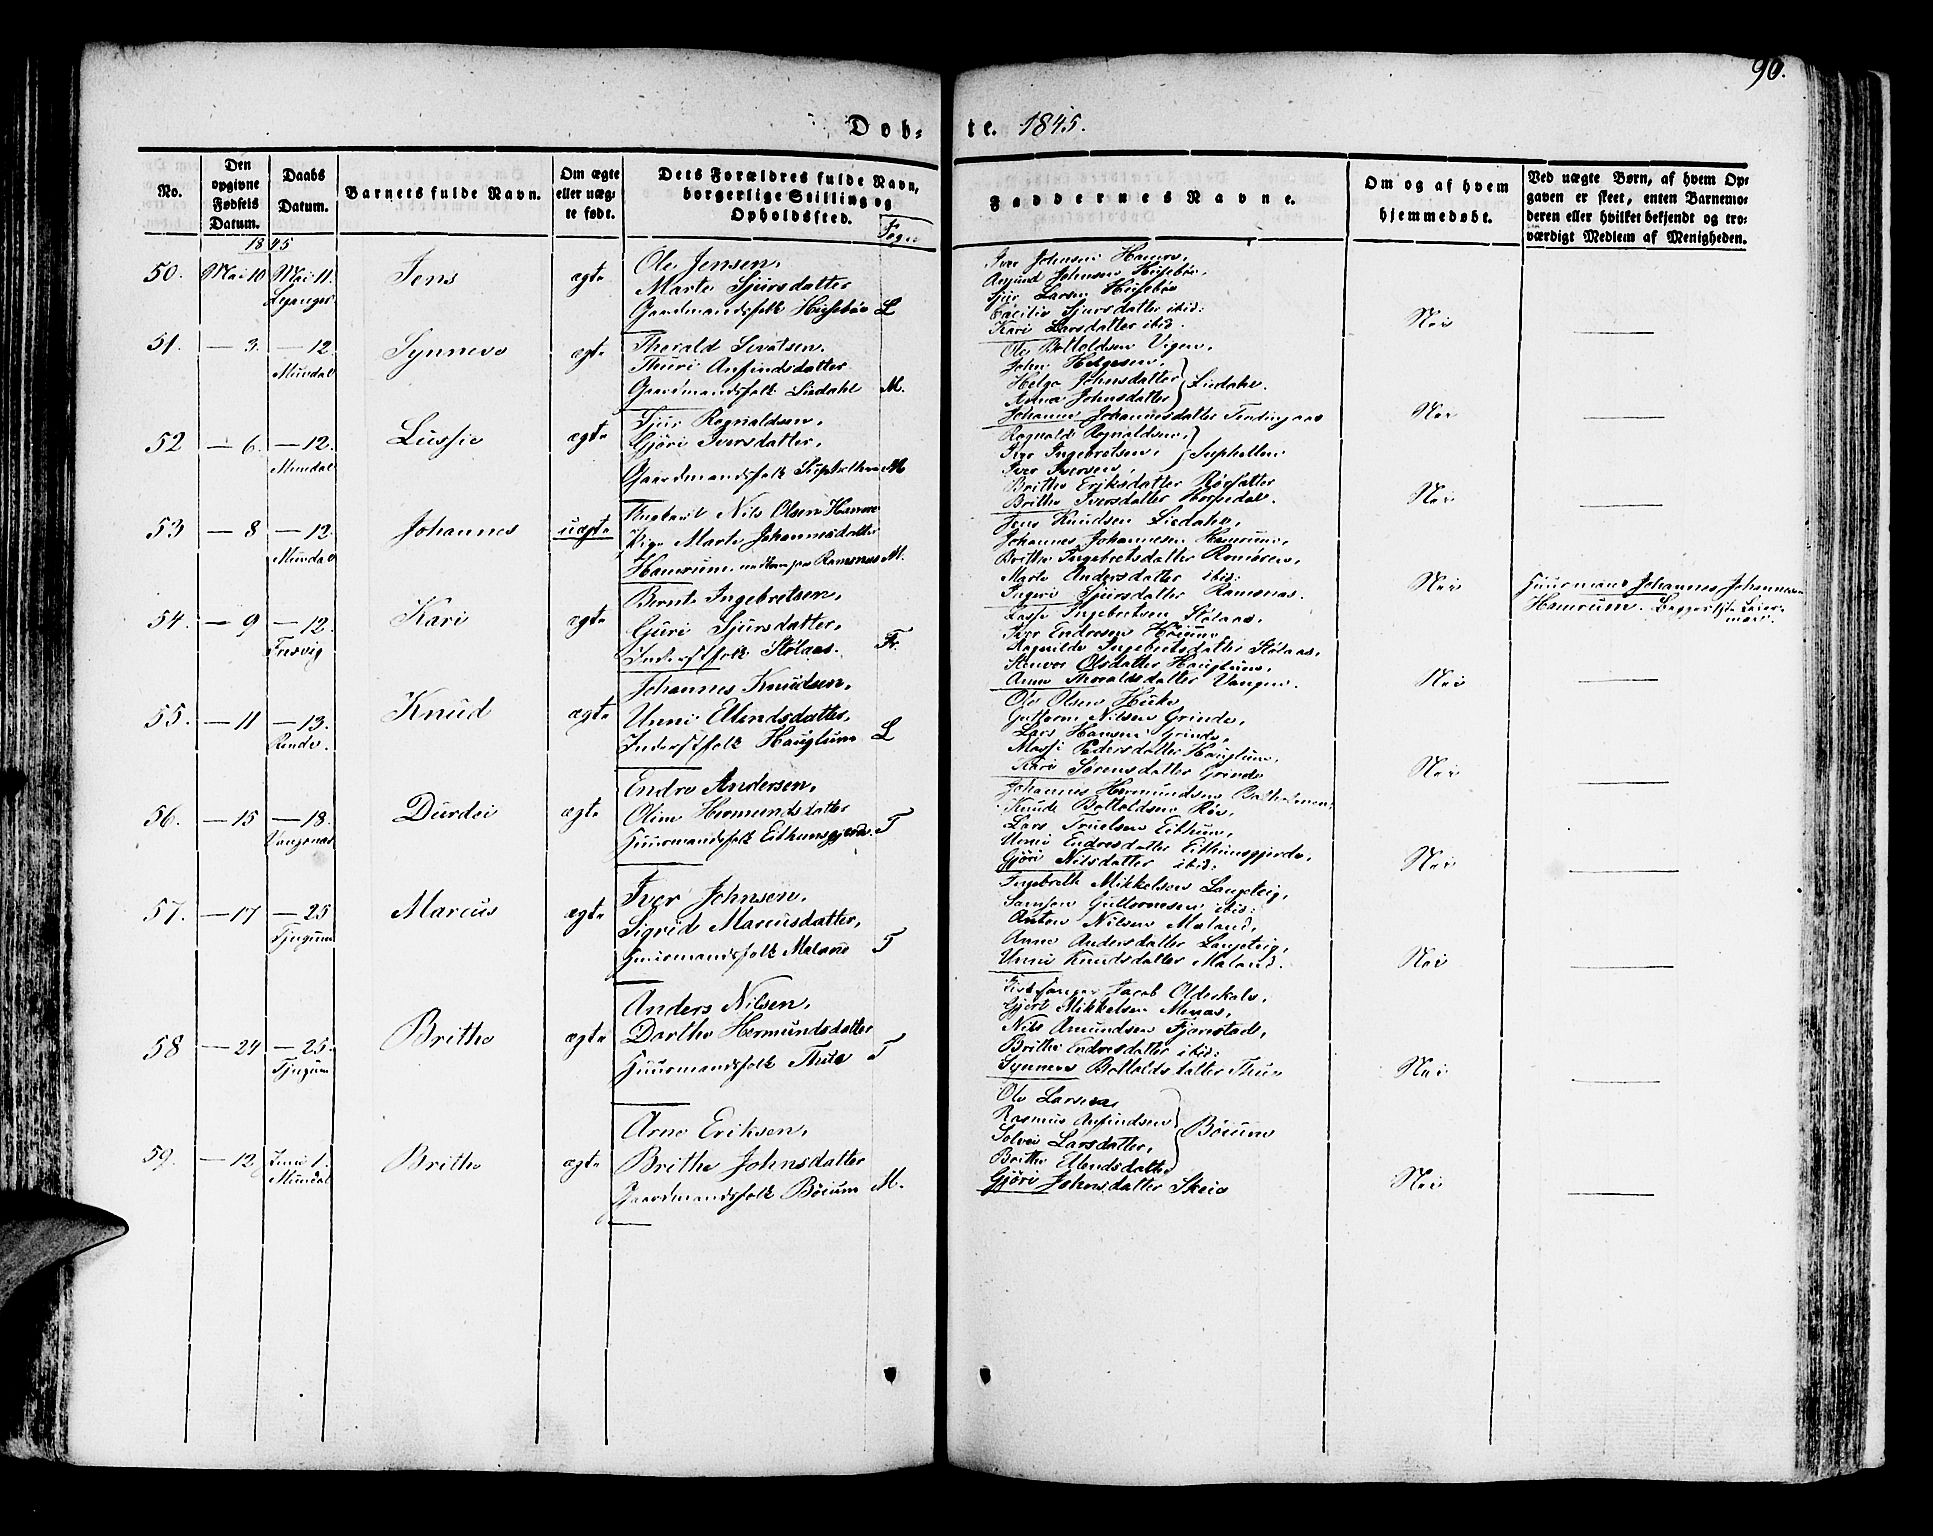 90.
Døb-
te. 1845.
No.
Den opgivne Fødsels Datum.
Daabs Datum.
Barnets fulde Navn.
Om ægte eller uæg-te født.
Dets Forældres fulde Navn, borgerlige Stilling og Opholdssted.
Sogn
Faddernes Navne.
Om og af hvem hjemmedøbt.
Ved uægte Børn, af hvem Op-
gaven er skeet, enten Barnemo-
deren eller hvilket bekjendt og tro-
værdigt Medlem af Menigheden.
1845
50. Mai 10 Mai 11. Jens ægte
Ole Jensen,
Marte Sjursdatter
Gaardmandsfolk Husebøe L
Iver Johnsen Hamre,
Amund Johnsen Husebøe,
Sjur Larsen Husebøe
Cecilie Sjursdatter ibid:
Kari Larsdatter ibid.
Nei
51. — 3. — 12 Synneve ægte
Mundal
Therald Sivatsen.
Thuri Anfindsdatter
Gaardmandsfolk Liedahl M.
Ole Bottoldsen Vigen,
John Helgesen,
Helge Johnsdatter
Anna Johnsdatter
Liedahl.
Johanne Johannesdatter
Nei
52 — 6. — 12. Lussie ægte
Mundal
Sjur Rognaldsen,
Gjøri Iversdatter,
Gaardmandsfolk Suphellen M
Rognald Rognaldsen,
Iver Ingebretsen,
Iver Iversen,
Suphellen
Brithe Eriksdatter
Brithe Iversdatter
Nei
53 — 8 — 12. Johannes uægte
Mundal
Nils Olsen Hamre
Pige Marte Johannesdatter
Hamrum. Ramsnæs M.
Jens Knudsen Liedahl,
Johannes Johannesen Hamrum,
Brithe Ingebretsdatter Romøren,
Marte Andersdatter ibid:
Ingeri Sjursdatter Ramsnæs.
Nei
Huusmand Johannes Johannesen
Hamrum.
54. — 9 — 12. Kari ægte
Fresvig
Bernt Ingebretsen,
Guri Sjursdatter,
Inderstfolk Stølaas. Fr.
Lasse Ingebretsen Stølaas,
Iver Endresen Høium
Ragnilde Ingebretsdatter Stølaas,
Olsdatter Hauglum,
Anna Thoraldsdatter Vangen.
Nei
55. — 11 — 13. Knud ægte
Rinde.
Johannes Knudsen,
Unni Ellendsdatter,
Inderstfolk Hauglum L
Ole Olsen Huke,
Guttorm Nilsen Grinde,
Lars Hansen Grinde,
Massi Pedersdatter Hauglum,
Kari Sørensdatter Grinde
Nei
56. — 15 — 18. Durdei ægte
Vangsnæs
Endre Andersen,
Oline Hermundsdatter
Huusmandsfolk Eithunsgjerde. T
Johannes Hermundsen
Knud Bottoldsen Røe,
Lars Truelsen Eithun,
Unni Endresdatter Eithunsgjerde,
Gjøri Nilsdatter ibid:
Nei
57. — 17 — 25 Marcus ægte
Tjugum
Iver Johnsen,
Sigrid Marcusdatter,
Huusmandsfolk Maland T
Ingebreth Mikkelsen Langeteig,
Samson Guttormsen ibid:
Anton Nilsen Maland,
Anne Andersdatter Langeteig,
Unni Knudsdatter Maland.
Nei
58 — 24 — 25. Brithe ægte
Tjugum
Anders Nilsen,
Dorthe Hermundsdatter
Huusmandsfolk T
Kirkesanger Jacob
Gjert Mikkelsen Menæs,
Nils Amundsen Fjærestad,
Brithe Endresdatter ibid:
Synneve Bottoldsdatter
Nei
59. — 12 Juni 1. Brithe ægte
Mundal
Arne Eriksen,
Brithe Johnsdatter
Gaardmandsfolk Bøium M.
Ole Larsen,
Rasmus Anfindsen
Solvei Larsdatter,
Brithe Ellendsdatter
Bøium
Gjøri Johnsdatter Skeie
Nei